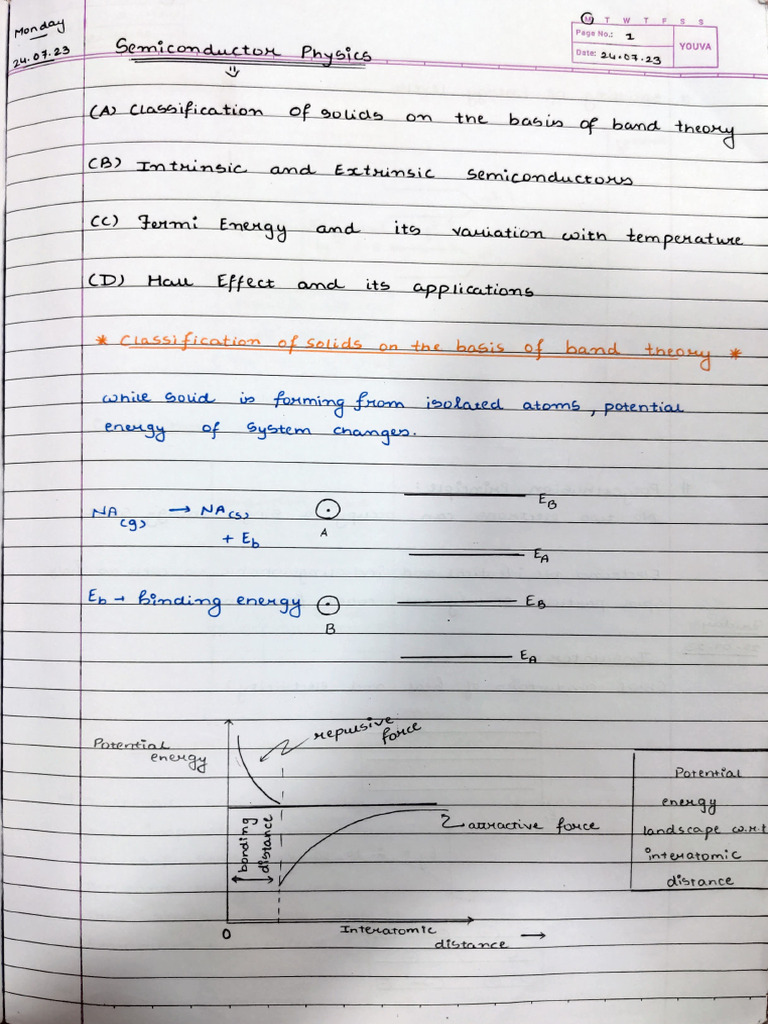 Monday
24.07.23
M T W T F S S
Page No.: 1
Date: 24.07.23
YOUVA
Semiconductor Physics
(A) Classification of solids on the basis of band theory
(B) Intrinsic and Extrinsic semiconductors
(C) Fermi Energy and its variation with temperature
(D) Hall Effect and its applications
* Classification of solids on the basis of band theory *
while solid is forming from isolated atoms, potential
energy of system changes.
NA(g) → NA(s)
+ Eb
A
EB
EA
Eb → binding energy
B
EB
EA
Potential
energy
repulsive
force
attractive force
bonding
distance
0
Interatomic
distance →
Potential
energy
landscape w.r.t
interatomic
distance